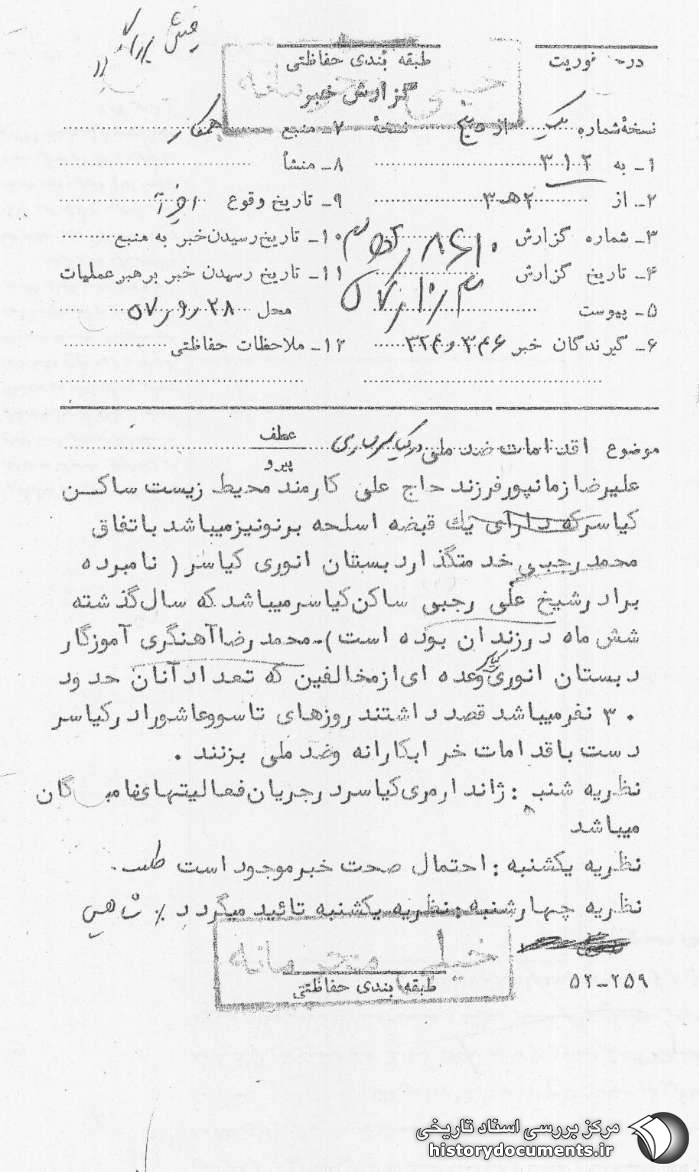 درجه فوریت
طبقه بندی حفاظتی
گزارش خبر
نسخهٔ شماره یک از نسخهٔ ۷ـ منبع همکار
۱ـ به ۳۱۲ ۸ـ منشأ
۲ـ از ۲هـ۳ ۹ـ تاریخ وقوع اخیرآ
۳ـ شماره گزارش ۱۰ـ تاریخ رسیدن خبر به منبع
۴ـ تاریخ گزارش ۵۷/۱۰/۳ ۱۱ـ تاریخ رسیدن خبر برهبر عملیات
۵ـ پیوست محل ۲۸ ر۹ ر۵۷
۶ـ گیرندگان خبر ۳۴۶ و ۳۲۴ ۱۲ـ ملاحظات حفاظتی
موضوع اقدامات ضد ملی در کیاسر ساری عطف
پیرو
علیرضا زمانپور فرزند حاج علی کارمند محیط زیست ساکن
کیاسر که دارای یک قبضه اسلحه برنو نیز میباشد باتفاق
محمد رجبی خدمتگذار دبستان انوری کیاسر ( نامبرده
برادر شیخ علی رجبی ساکن کیاسر میباشد که سال گذشته
شش ماه در زندان بوده است )ـ محمد رضا آهنگری آموزگار
دبستان انوری کیاسر وعده ای از مخالفین که تعداد آنان حدود
۳۰ نفر میباشد قصد داشتند روزهای تاسوعا عاشورا در کیاسر
دست باقدامات خرابکارانه وضد ملی بزنند .
نظریه شنبه : ژاندارمری کیاسر در جریان فعالیتهای نامبردگان
میباشد
نظریه یکشنبه : احتمال صحت خبر موجود است
نظریه چهارشنبه : نظریه یکشنبه تائید میگردد ٪ شاهین
خیلی محرمانه
طبقه بندی حفاظتی
۵۲ــ۲۵۹
مرکز بررسی اسناد تاریخی
historydocuments.ir